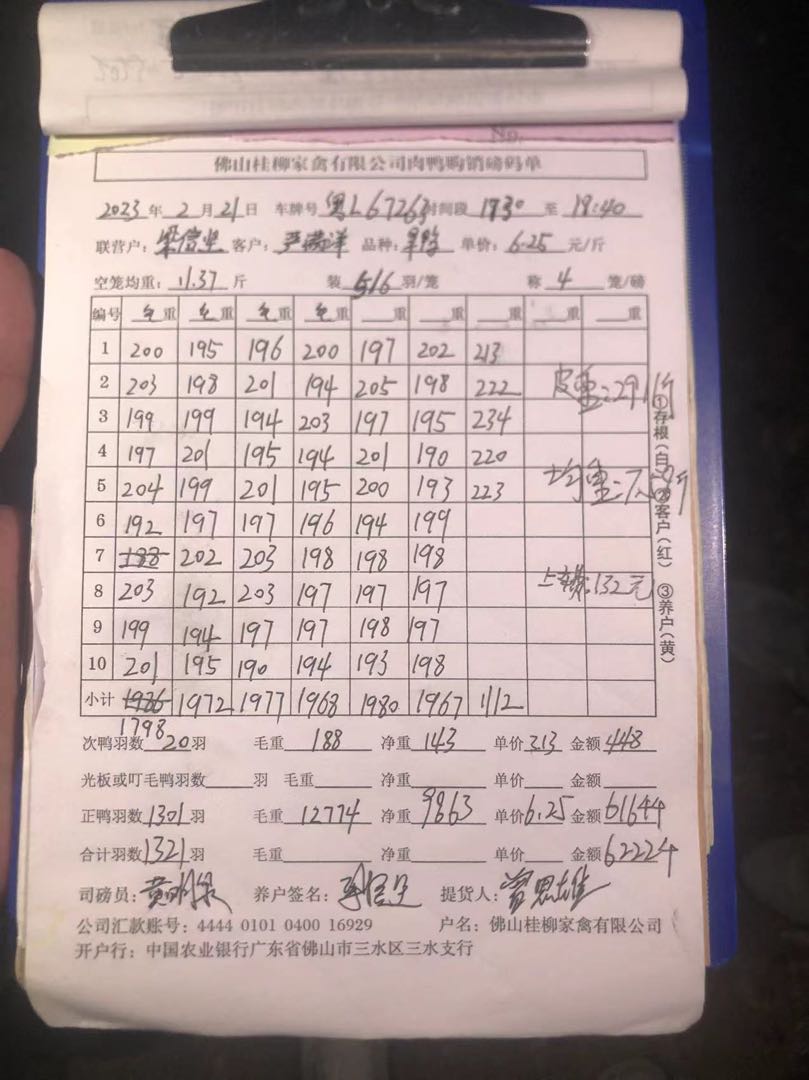 No.
佛山桂柳家禽有限公司肉鸭购销磅码单
2023 年 2 月 21 日 车牌号 粤L67263 时间段 1730 至 18:40
联营户: 梁信坚 客户: 严满洋 品种: 单价: 6.25 元/斤
空笼均重: 11.37 斤 装 516 羽/笼 称 4 笼/磅
编号 毛重 毛重 毛重 毛重 重 重 重 重 重
1 200 195 196 200 197 202 213
2 203 198 201 194 205 198 222 皮重:2911斤
3 199 199 194 203 197 195 234
4 197 201 195 194 201 190 220
5 204 199 201 195 200 193 223 均重:
6 192 197 197 196 194 199
7 188 202 203 198 198 198
8 203 192 203 197 197 197 上车费:132元
9 199 194 197 197 198 197
10 201 195 190 194 193 198
小计 1986 1972 1977 1968 1980 1967 1112
1798
次鸭羽数 20 羽 毛重 188 净重 143 单价 3.13 金额 448
光板或叮毛鸭羽数 羽 毛重 净重 单价 金额
正鸭羽数 1301 羽 毛重 12774 净重 9863 单价 6.25 金额 61644
合计羽数 1321 羽 毛重 净重 单价 金额 62224
司磅员: 养户签名: 提货人:
公司汇款账号: 4444 0101 0400 16929 户名: 佛山桂柳家禽有限公司
开户行: 中国农业银行广东省佛山市三水区三水支行
①存根(白) ②客户(红) ③养户(黄)